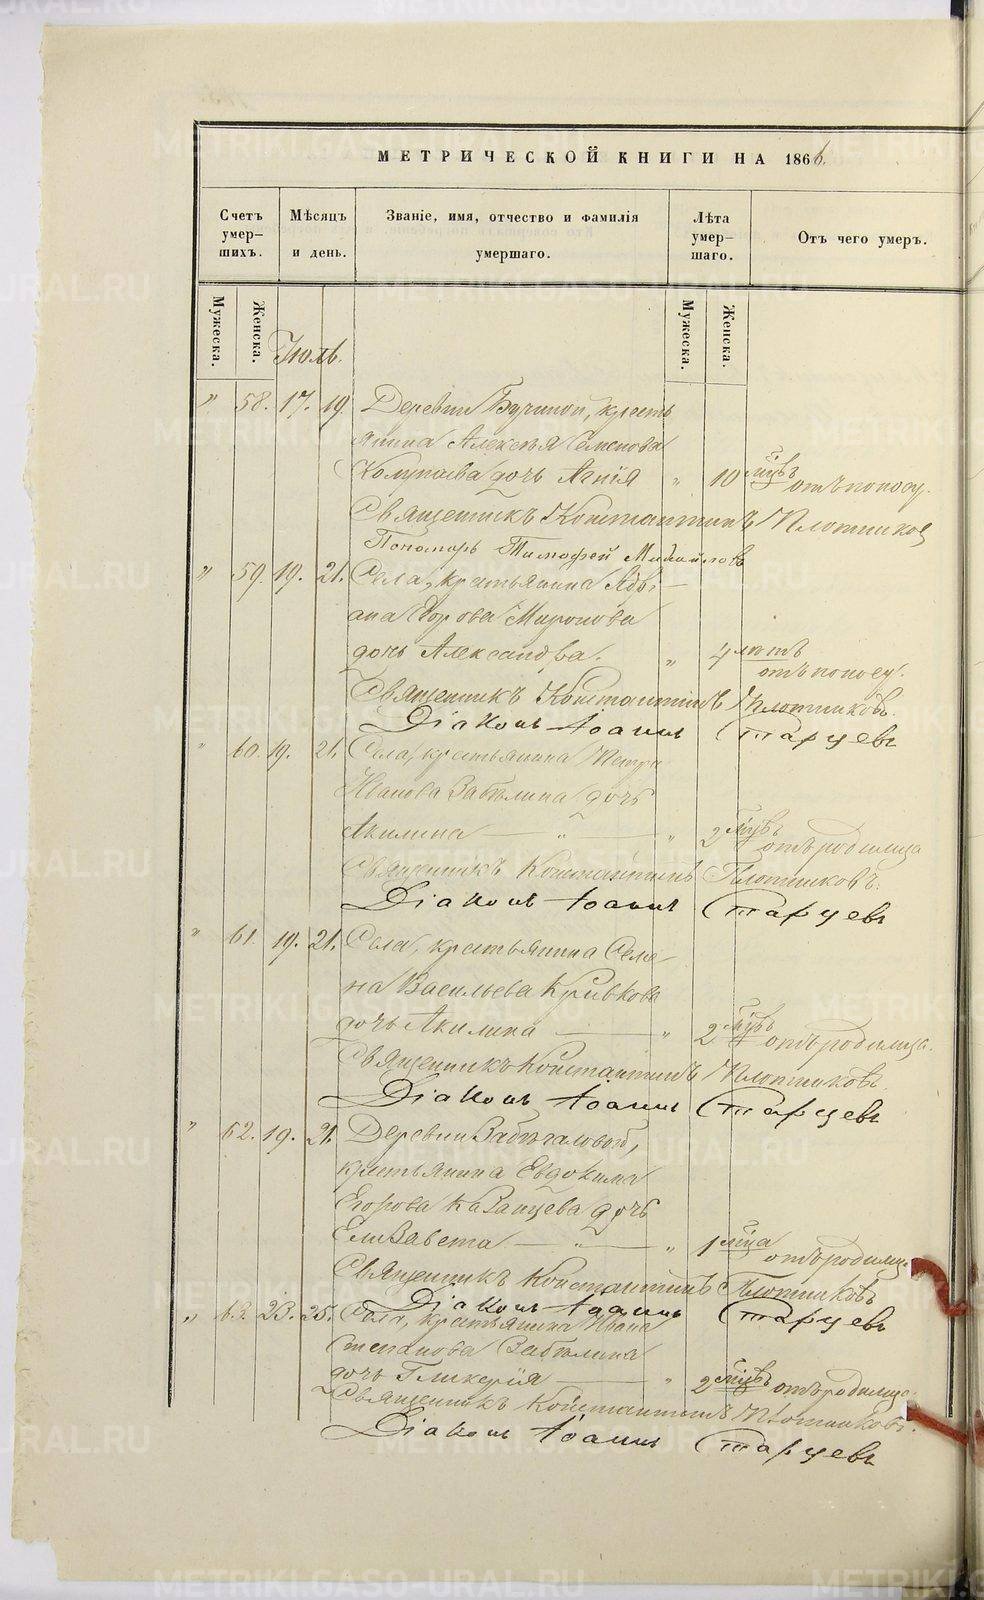 МЕТРИЧЕСКОЙ КНИГИ НА 1866.
Счетъ умер-шихъ.
Мѣсяцъ и день.
Званіе, имя, отчество и фамилія умершаго.
Лѣта умер-шаго.
Отъ чего умеръ.
Мужеска.
Женска.
Мужеска.
Женска.
Іюль.
" 58. 17. 19. Деревни Бучиной, кресть
янина Алексѣя Семенова
Колупаева дочь Агнія " 10 мцвъ отъ поносу.
Священникъ Константинъ Плотников
Пономарь Тимофей Михайловъ
" 59. 19. 21. Села, крестьянина Адрі-
ана Егорова Миронова
дочь Александра. " 4 лѣтъ отъ поносу.
Священникъ Константинъ Плотниковъ.
Діаконъ Іоаннъ Старцевъ
" 60. 19. 21. Села, крестьянина Петра
Иванова Забѣлина дочь
Акилина — " — " 2 мцвъ отъ родимца
Священникъ Константинъ Плотниковъ.
Діаконъ Іоаннъ Старцевъ
" 61. 19. 21. Села, крестьянина Семе-
на Васильева Кривкова
дочь Акилина — " 2 мцвъ отъ родимца.
Священникъ Константинъ Плотниковъ.
Діаконъ Іоаннъ Старцевъ
" 62. 19. 21. Деревни
крестьянина Евдокима
Егорова Казанцева дочь
Елизавета — " — " 1 мца отъ родимца
Священникъ Константинъ Плотниковъ
Діаконъ Іоаннъ Старцевъ
" 63. 23. 25. Села, крестьянина Ивана
Степанова Забѣлина
дочь Гликерія — " 2 мцвъ отъ родимца
Священникъ Константинъ Плотниковъ.
Діаконъ Іоаннъ Старцевъ
METRIKI.GASO-URAL.RU